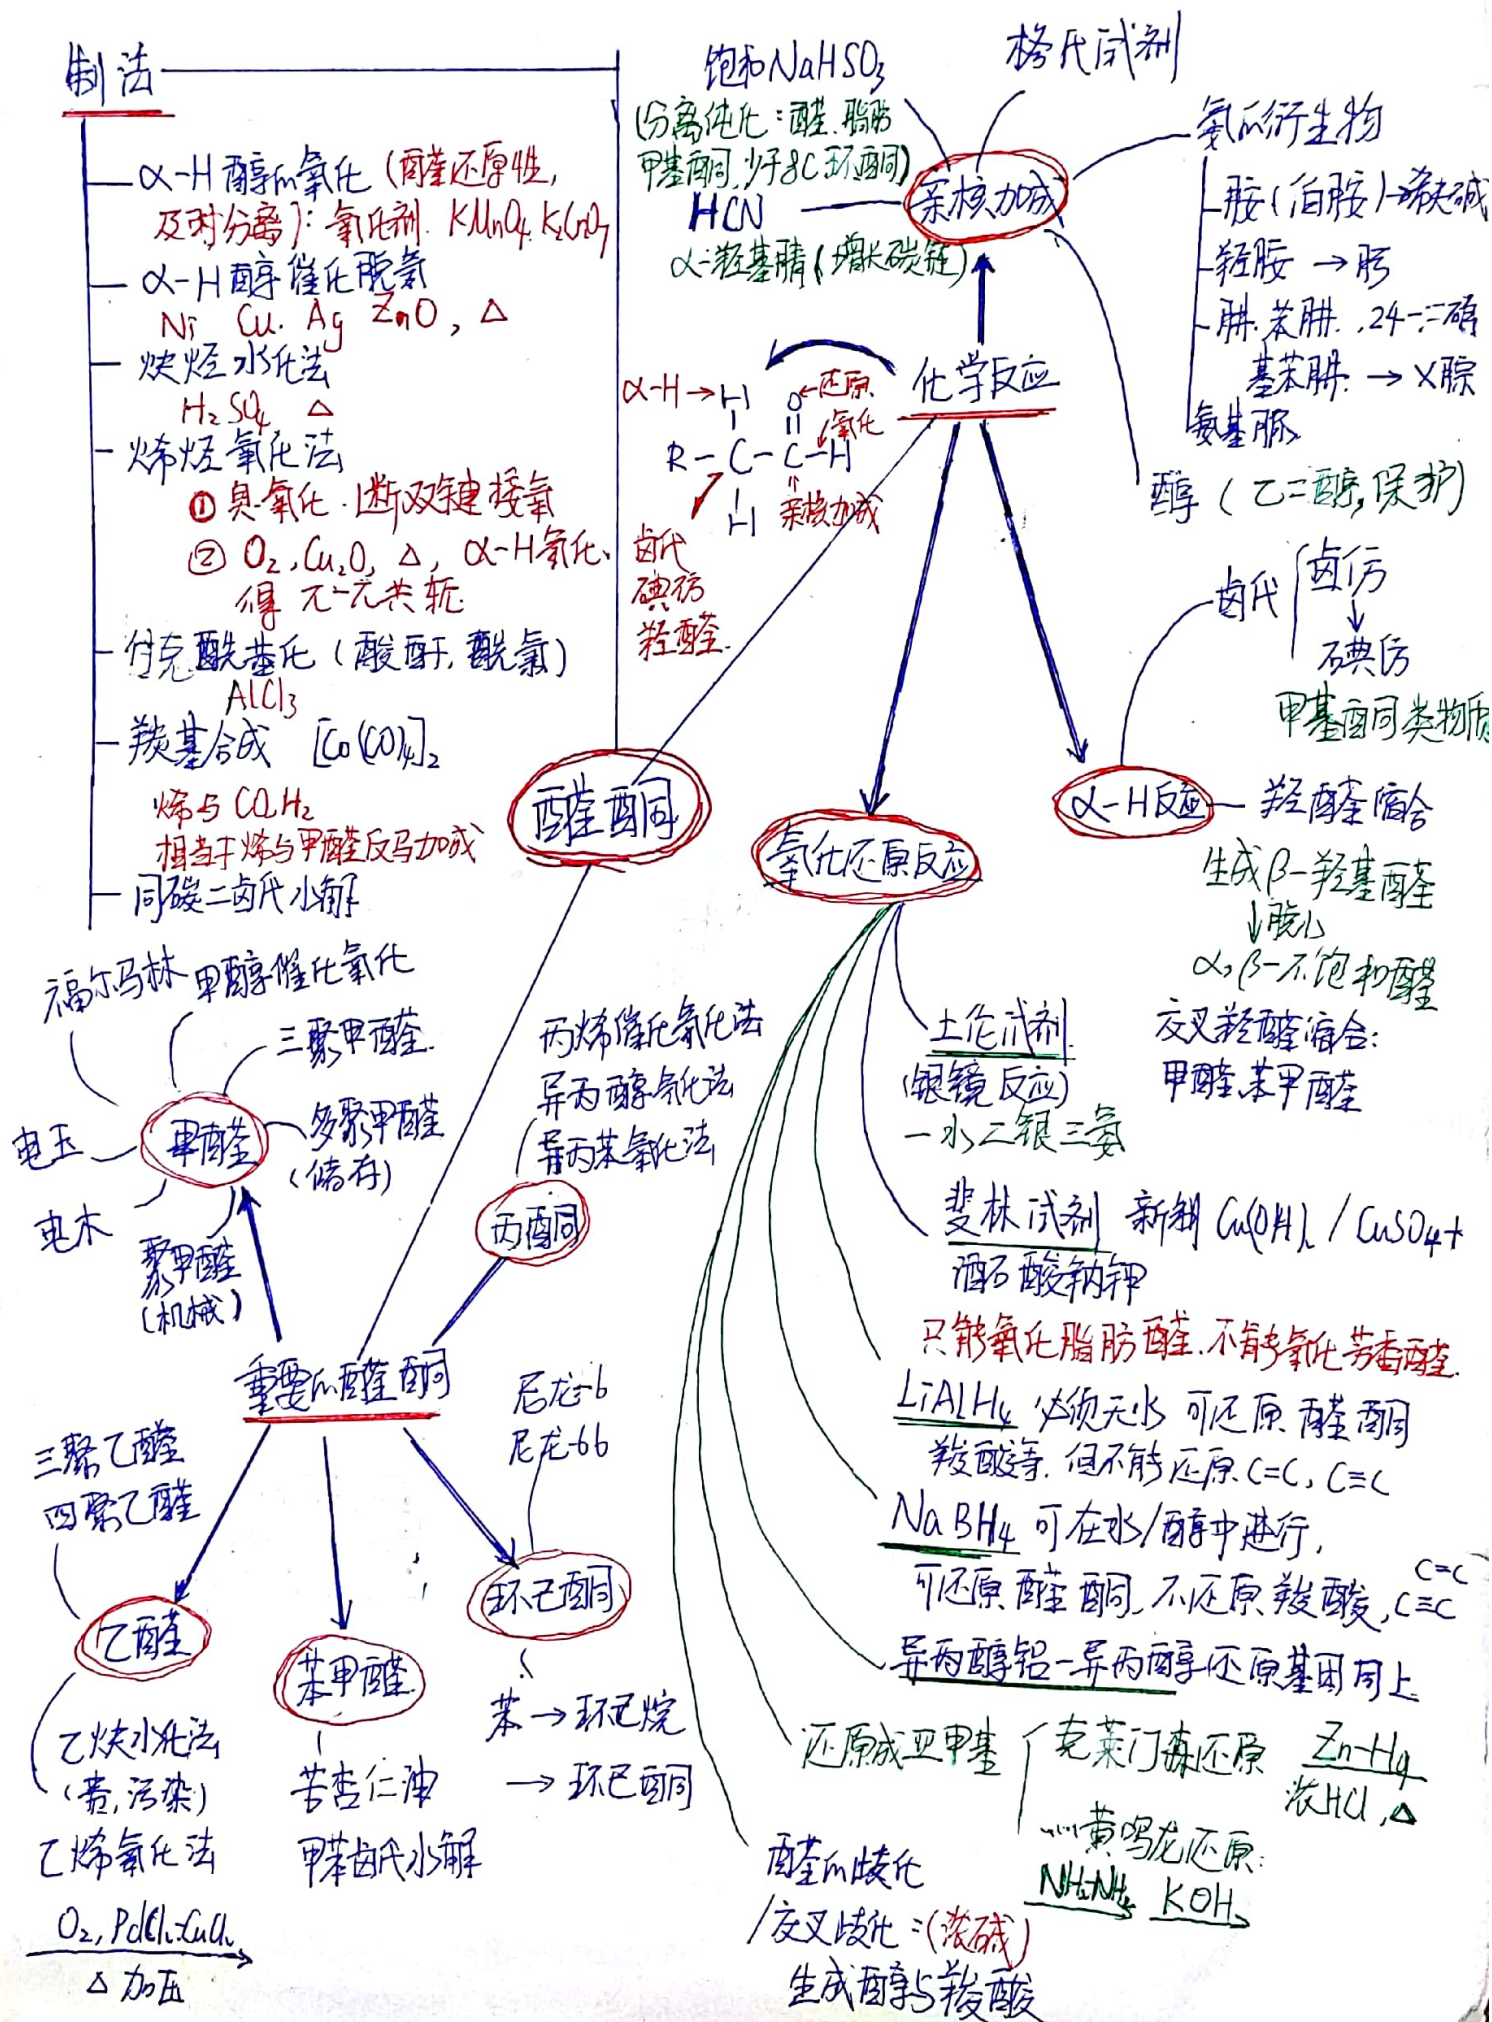 制法
α-H醇的氧化(醛还原性,
及时分离):氧化剂.KMnO₄.K₂CrO₇
α-H醇催化脱氢
Ni Cu. Ag ZnO, △
炔烃水化法
H₂SO₄ △
烯烃氧化法
① 臭氧化.断双键接氧
② O₂,Cu₂O, △, α-H氧化、
得 π-π共轭
付克酰基化(酸酐,酰氯)
AlCl₃
羰基合成 [Co(CO)₄]₂
烯与CO,H₂
相当于烯与甲醛反马加成
同碳二卤代水解
饱和NaHSO₃
(分离纯化:醛.脂肪
甲基酮,少于8C环酮)
HCN
α-羟基腈(增长碳链)
格氏试剂
亲核加成
氨的衍生物
胺(伯胺)→希夫碱
羟胺→肟
肼.苯肼.,24-二硝
基苯肼.→X腙
氨基脲
醇(乙二醇,保护)
化学反应
α-H→H
O←还原
氧化
R-C-C-H
H
亲核加成
卤代
碘仿
羟醛.
卤代
卤仿
↓
碘仿
甲基酮同类物质
α-H反应
羟醛缩合
生成β-羟基醛
↓脱水
α,β-不饱和醛
交叉羟醛缩合:
甲醛、苯甲醛
醛酮
氧化还原反应
土伦试剂
(银镜反应)
一水二银三氨
斐林试剂 新制Cu(OH)₂/CuSO₄+
酒石酸钠钾
只能氧化脂肪醛.不能氧化芳香醛.
LiAlH₄ 必须无水 可还原醛酮
羧酸等.但不能还原C=C,C≡C
NaBH₄ 可在水/醇中进行,
可还原醛酮.不还原羧酸,C≡C
C=C
异丙醇铝-异丙醇还原基团同上
还原成亚甲基
克莱门森还原 Zn-Hg
浓HCl,△
……黄鸣龙还原:
NH₂-NH₂ KOH
醛的歧化
/交叉歧化:(浓碱)
生成醇与羧酸
福尔马林
甲醇催化氧化
三聚甲醛
多聚甲醛
(储存)
甲醛
电玉
电木
聚甲醛
(机械)
丙烯催化氧化法
异丙醇氧化法
异丙苯氧化法
丙酮
重要的醛酮
尼龙-6
尼龙-66
环己酮
苯→环己烷
→环己酮
三聚乙醛
四聚乙醛
乙醛
乙炔水化法
(贵,污染)
乙烯氧化法
O₂,PdCl₂-CuCl₂
△加压
苯甲醛
苦杏仁油
甲苯卤代水解